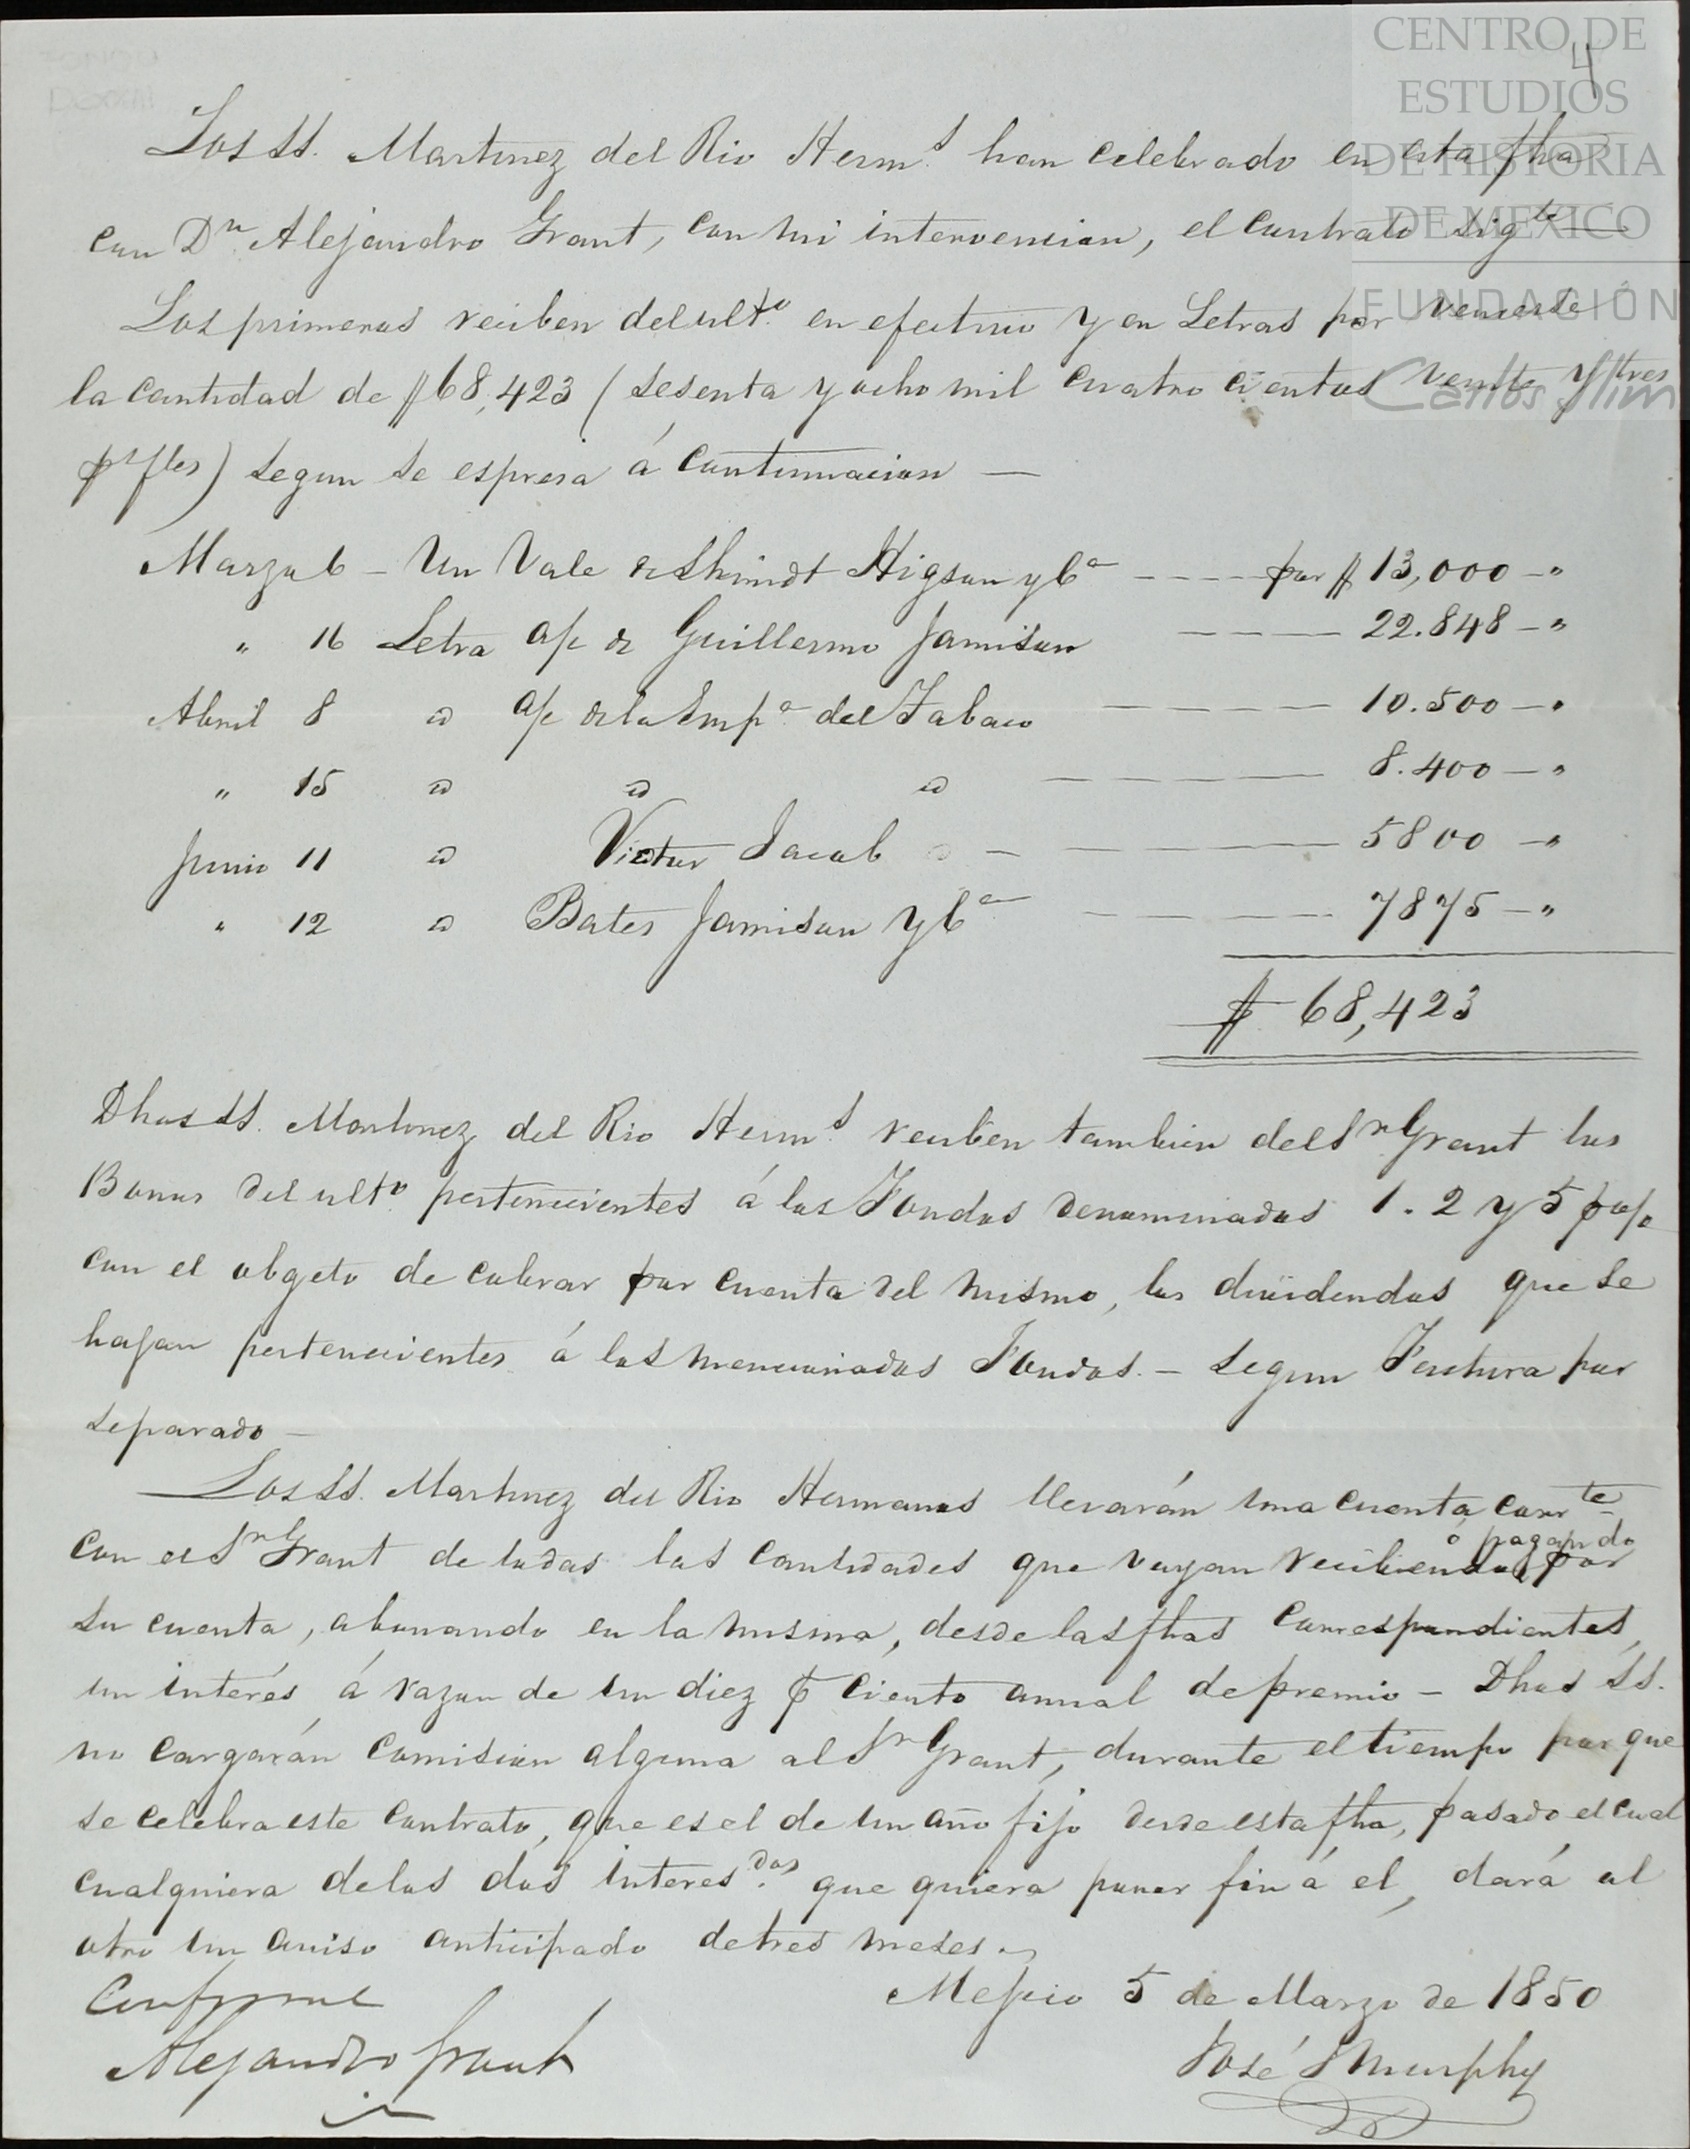 CENTRO DE
ESTUDIOS
DE HISTORIA
DE MEXICO
FUNDACIÓN
Carlos Slim
4
Los SS. Martinez del Rio Herm.s han celebrado en esta fha
con Dn Alejandro Grant, con mi intervencion, el contrato sigte
Los primeros reciben del ulto. en efectivo y en Letras por vencerse
la cantidad de $68,423 (sesenta y ocho mil cuatro cientos veinte y tres
ps ftes) segun se espresa á continuacion —
Marzo 6 – Un Vale de Shmidt Higson y Ca ---- por $ 13,000 – "
" 16 Letra a/c de Guillermo Jamison ---- 22.848 – "
Abril 8 @ a/c de la Empa. del Tabaco ---- 10.500 – "
" 15 @ @ @ ---- 8.400 – "
Junio 11 @ Victor Jacob – ---- 5800 – "
" 12 @ Bates Jamison y Ca ---- 7875 – "
$ 68,423
Dhos SS. Martinez del Rio Herm.s reciben tambien del Sr Grant los
Bonos del ulto. pertenecientes á los Fondos denominados 1. 2 y 5 p o/o
con el obgeto de cobrar por cuenta del mismo, los dividendos que se
hagan pertenecientes á los mencionados Fondos. – segun Factura por
separado –
Los SS. Martinez del Rio Hermanos llevarán una cuenta corrte
con el Sr Grant de todas las cantidades que vayan recibiendo ó pagando por
su cuenta, abonando en la misma, desde las fhas correspondientes,
un interés á razon de un diez p ciento anual de premio – Dhos SS.
no cargarán comision alguna al Sr Grant, durante el tiempo por que
se celebra este contrato, que es el de un año fijo desde esta fha, pasado el cual
cualquiera de los dos interes.dos que quiera poner fin á el, dará al
otro un aviso anticipado de tres meses.
Conforme
Mejico 5 de Marzo de 1850
Alejandro Grant
José S Murphy